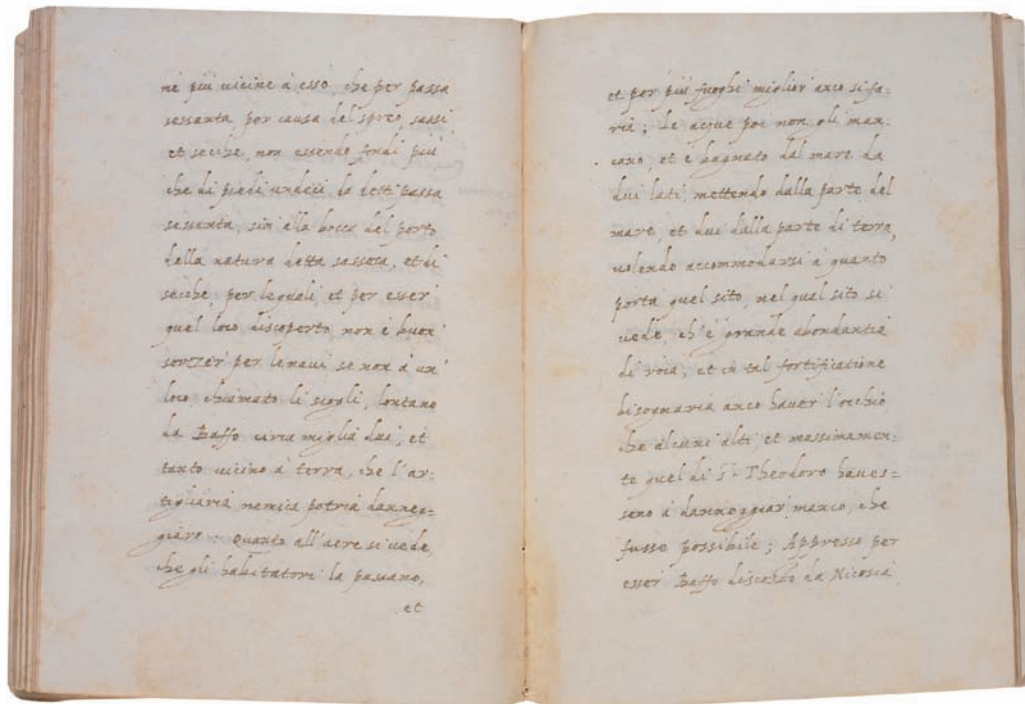 né più uicine à esso, che per passa
sessanta, per causa del spreo, sassi
et secche, non essendo fondi più
che di piedi undeci da detti passa
sessanta, sin alla bocca del porto
della natura detta sassosa, et di
secche, per lequali, et per esser
quel loco discoperto, non è buon
sorzer per le naui se non à un
loco, chiamato li scogli, lontano
da Baffo circa miglia dui, et
tanto uicino à terra, che l'ar=
tigliaria nemica potria danneg=
giare: Quanto all'aere si uede,
che gli habitatori la passano,
et
et per più fuoghi miglior anco si fa=
ria; Le acque poi non gli man=
cano, et è bagnato dal mare da
dui lati, mettendo dalla parte del
mare, et dui dalla parte di terra,
uolendo accommodarsi à quanto
porta quel sito, nel qual sito si
uede, ch'è grande abondantia
di roca, et in tal fortificatione
bisognaria anco hauer l'occhio
che alcuni alti, et massimamen=
te quel di S. Theodoro haues=
seno à danneggiar manco, che
fusse possibile; Appresso per
esser Baffo discosto da Nicosia